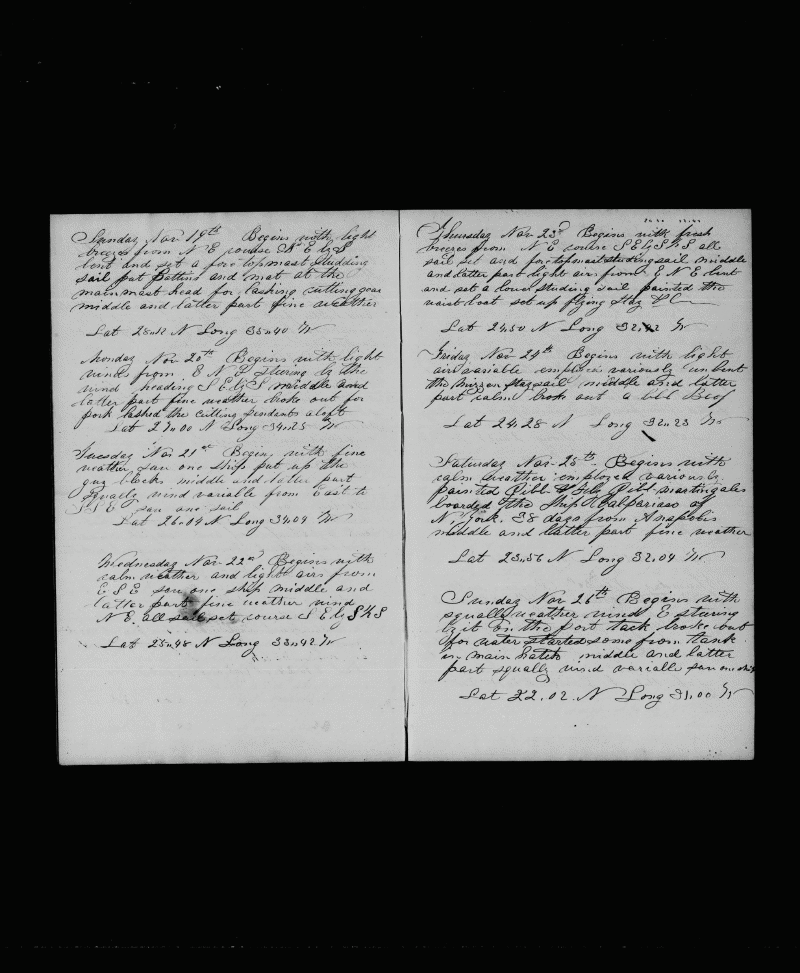 Sunday Nov 19th Begins with light
breezes from N E course S E by S
bent and set a fore topmast studding
sail put Battins and mat at the
mainmast head for lashing cutting gear
middle and latter part fine weather
Lat 28.12 N Long 35.40 W
Monday Nov 20th Begins with light
winds from E N E stering by the
wind heading S E by S middle and
latter part fine weather broke out for
pork lashed the cutting pendents aloft
Lat 27.00 N Long 34.25 W
Tuesday Nov 21st Begins with fine
weather saw one ship put up the
guy blocks middle and latter part
squally wind variable from East to
S S E saw one sail
Lat 26.04 N Long 34.04 W
Wednesday Nov 22nd Begins with
calm weather and light airs from
E S E saw one ship middle and
latter part fine weather wind
N E. all sail set course S E by S 1/2 S
Lat 25.48 N Long 33.42 W
Thursday Nov 23d Begins with fresh
breezes from N E course S E by S 1/2 S all
sail set and fore topmast studing sail middle
and latter part light airs from E N E bent
and set a lower studing sail painted the
waist boat set up flying stay
Lat 24.50 N Long 32. W
Friday Nov 24th Begins with light
airs variable employed variously unbent
the mizzen staysail middle and latter
part calm broke out a bbl Beef
Lat 24.28 N Long 32.23 W
Saturday Nov 25th Begins with
calm weather imployed variously
painted Jibb & Fly Jibb martingales
boarded the Ship Valpariaso of
N York. 38 days from Anapolis
middle and latter part fine weather
Lat 23.56 N Long 32.04 W
Sunday Nov 26th Begins with
squally weather wind E stering
by it on the port tack broke out
for water started some from tank
in main hatch middle and latter
part squally wind variable saw one ship
Lat 22.02 N Long 31.00 W